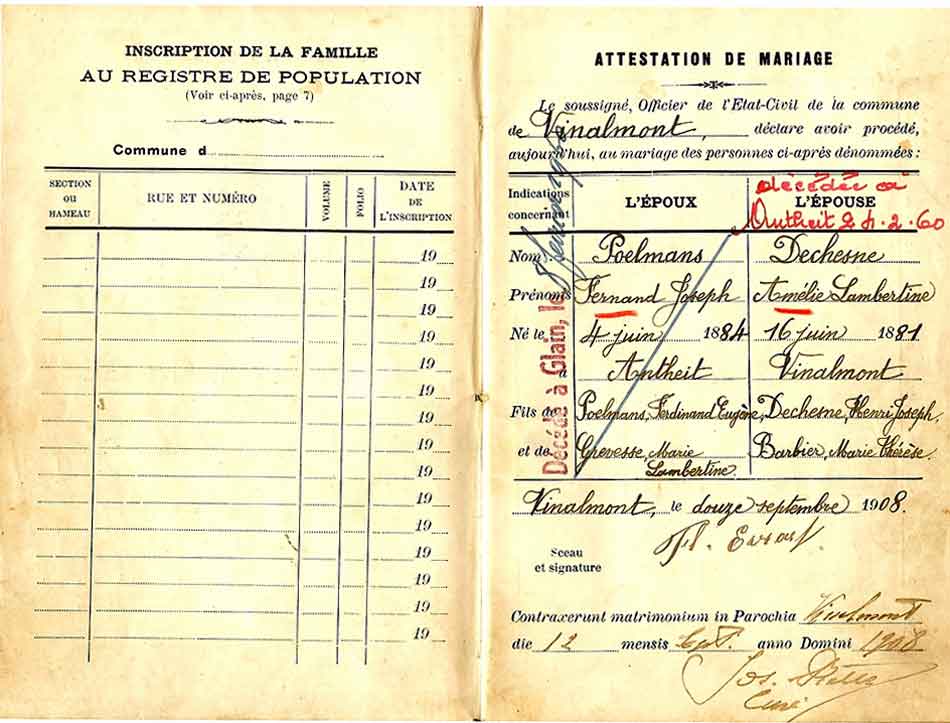 INSCRIPTION DE LA FAMILLE
AU REGISTRE DE POPULATION
(Voir ci-après, page 7)
Commune d
SECTION OU HAMEAU
RUE ET NUMÉRO
VOLUME
FOLIO
DATE DE L'INSCRIPTION
19
19
19
19
19
19
19
19
19
19
19
19
19
19
19
ATTESTATION DE MARIAGE
Le soussigné, Officier de l'Etat-Civil de la commune
de Vinalmont, déclare avoir procédé,
aujourd'hui, au mariage des personnes ci-après dénommées :
décédée à
Antheit 24.2.60
Indications concernant
L'ÉPOUX
L'ÉPOUSE
Nom Poelmans Dechesne
Prénoms Fernand Joseph Amélie Lambertine
Né le 4 juin 1884 16 juin 1881
à Antheit Vinalmont
Fils de Poelmans, Ferdinand Eugène, Dechesne, Henri Joseph,
et de Grevesse, Marie Lambertine Barbier, Marie Thérèse.
Décédé à Glain, le
Vinalmont, le douze septembre 1908.
Sceau
et signature
Contraxerunt matrimonium in Parochia Vinalmont
die 12 mensis Sept. anno Domini 1908
Jos.
Curé